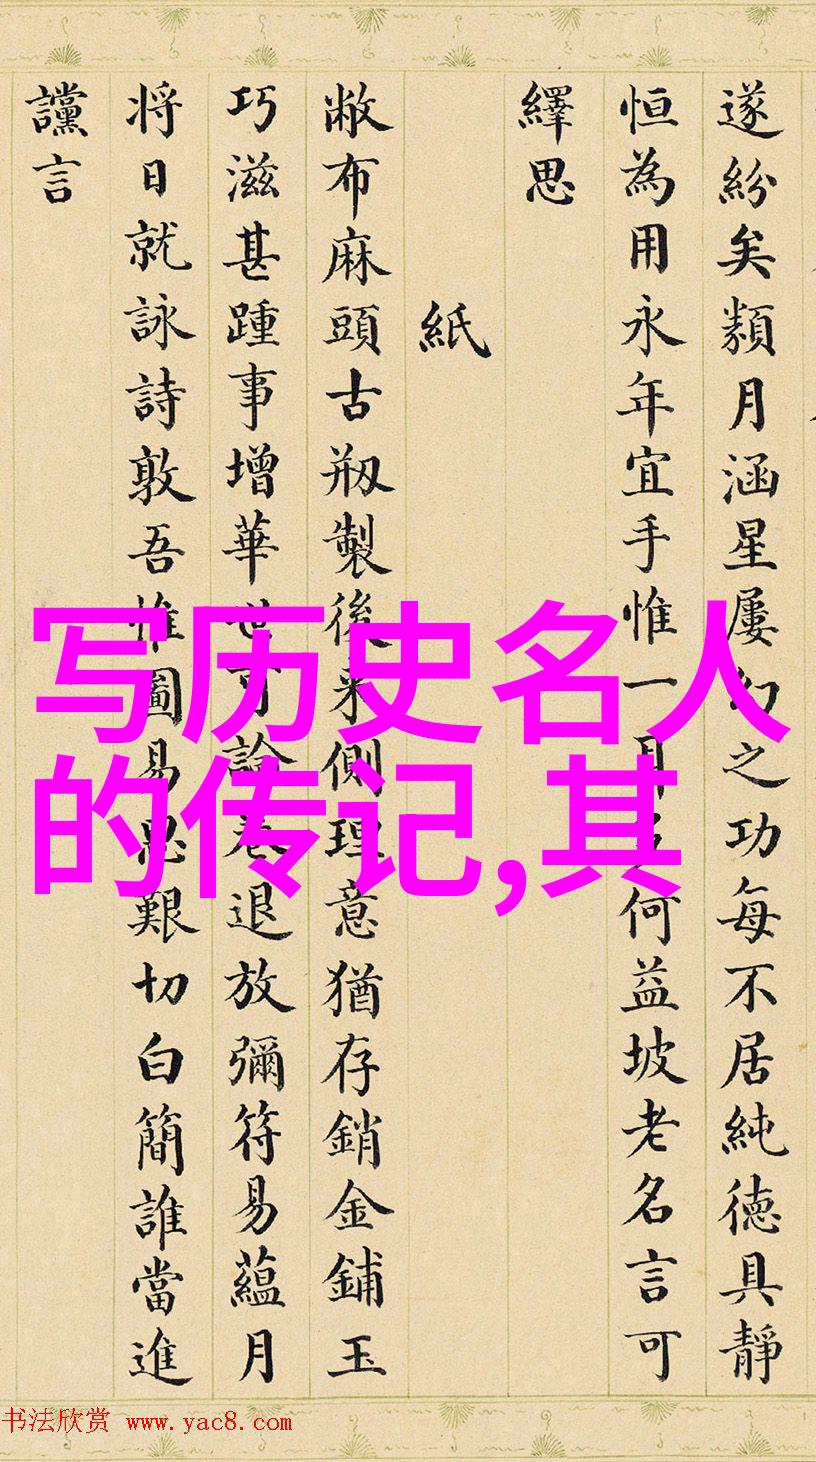 遂紛矣類月涵星屢幻之功每不居純德具靜
恒為用永年宜手惟一耳多何益坡老名言可
繹思
紙
敝布麻頭古剏製後來側理意猶存銷金鋪玉
巧滋甚踵事增華世可論卷退放彌符易蘊月
将日就詠詩敦吾惟圖易思艱切白簡誰當進
讜言
写历史名人
的传记,其
书法欣赏 www.yac8.com